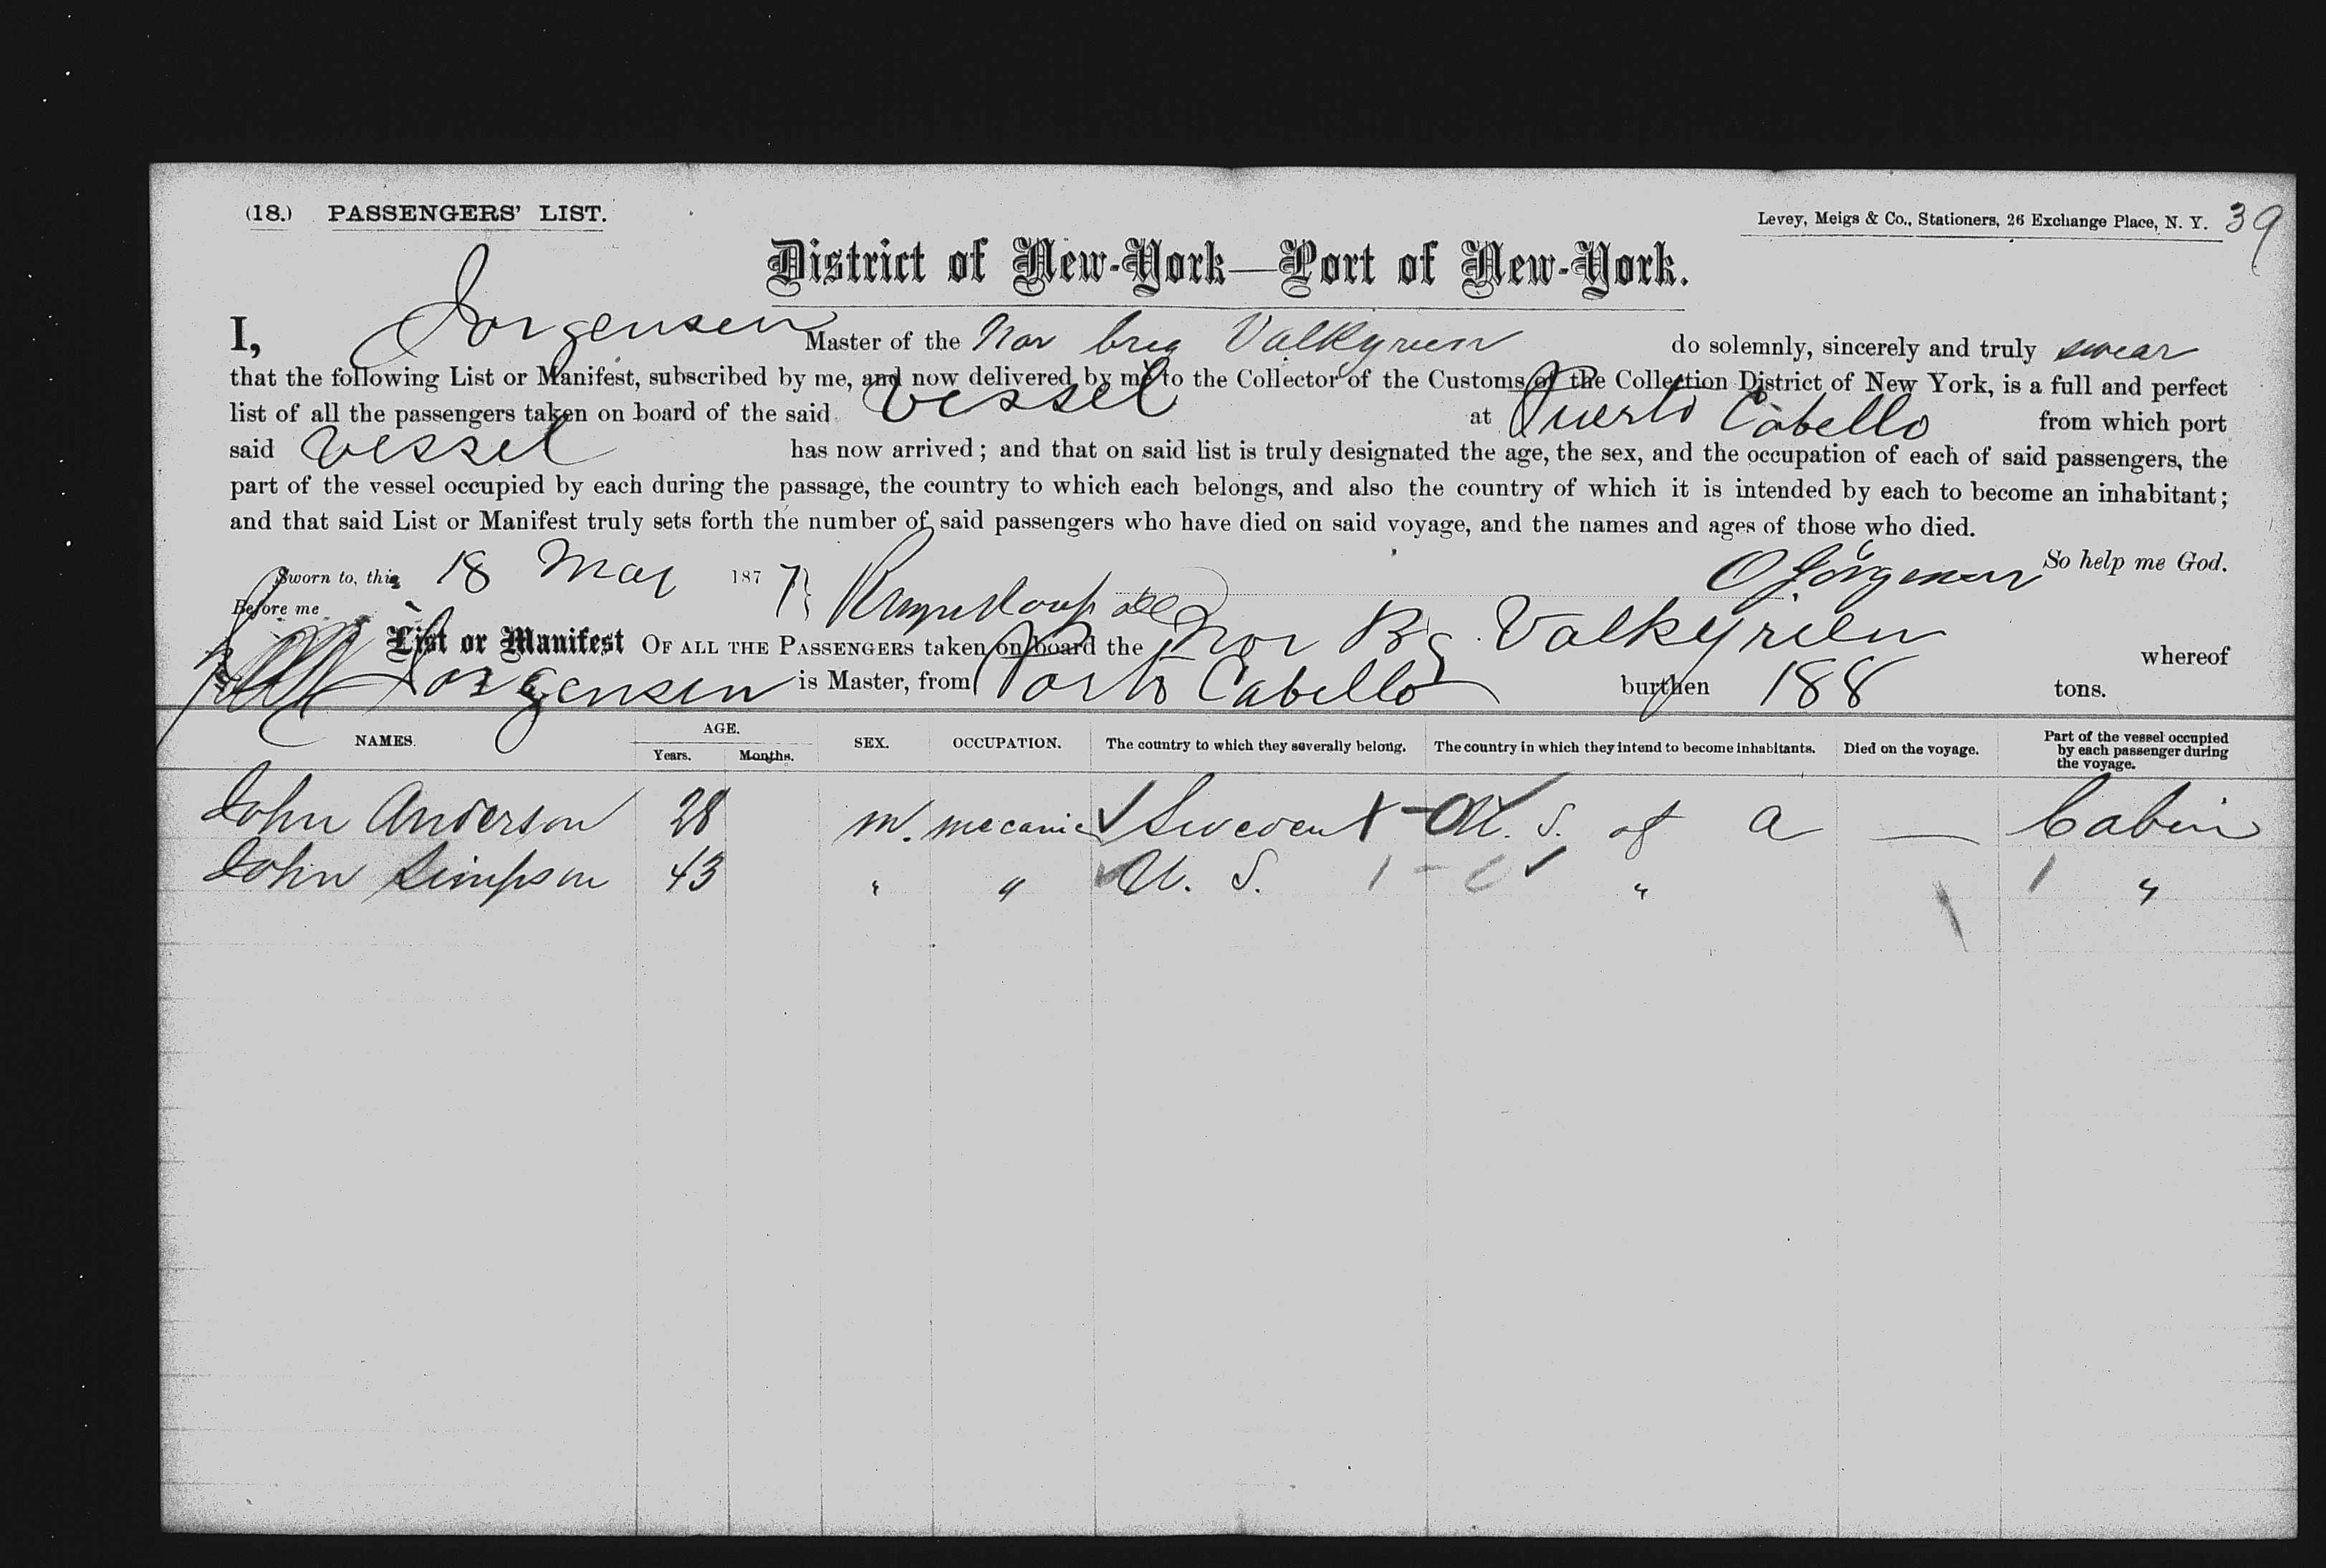 (18.) PASSENGERS' LIST.
Levey, Meigs & Co., Stationers, 26 Exchange Place, N. Y. 39
District of New-York—Port of New-York.
I, Jorgensen Master of the Nor brig Valkyrien do solemnly, sincerely and truly swear
that the following List or Manifest, subscribed by me, and now delivered by me to the Collector of the Customs of the Collection District of New York, is a full and perfect
list of all the passengers taken on board of the said vessel at Puerto Cabello from which port
said vessel has now arrived; and that on said list is truly designated the age, the sex, and the occupation of each of said passengers, the
part of the vessel occupied by each during the passage, the country to which each belongs, and also the country of which it is intended by each to become an inhabitant;
and that said List or Manifest truly sets forth the number of said passengers who have died on said voyage, and the names and ages of those who died.
So help me God.
Sworn to, this 18 May 1877 O Jörgensen
Before me
List or Manifest OF ALL THE PASSENGERS taken on board the Nor Bg Valkyrien whereof
Jorgensen is Master, from Porto Cabello burthen 188 tons.
NAMES. AGE. Years. Months. SEX. OCCUPATION. The country to which they severally belong. The country in which they intend to become inhabitants. Died on the voyage. Part of the vessel occupied by each passenger during the voyage.
John Anderson 28 m. mecanic Sweden U. S. of a — Cabin
John Simpson 43 " " U. S. " "